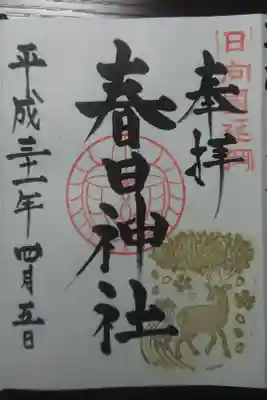 奉拝
日向国延岡
春日神社
平成三十一年四月五日